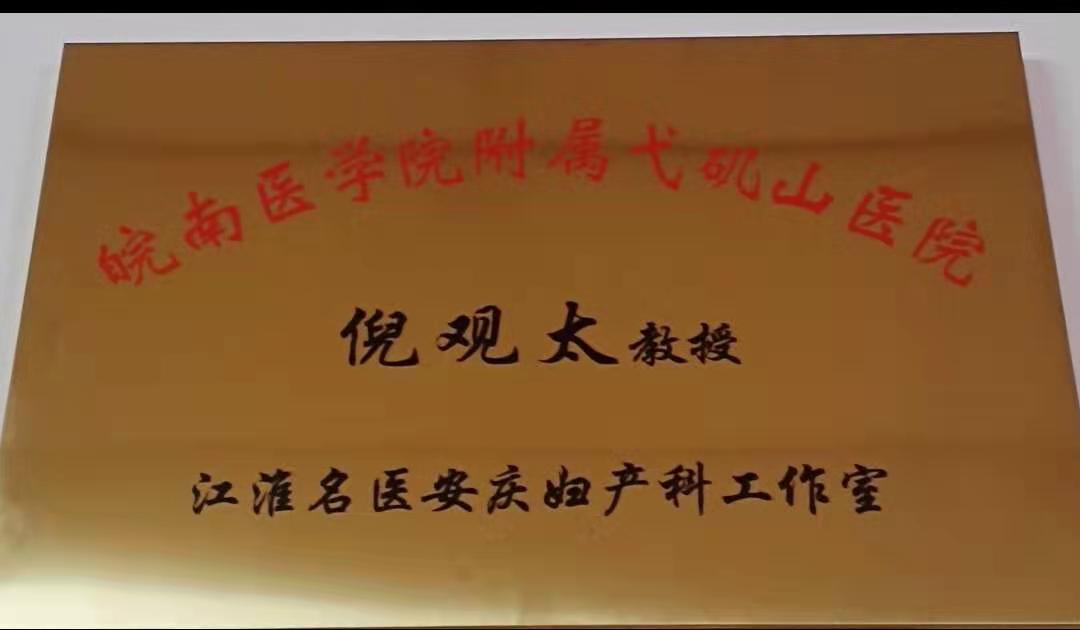 皖南医学院附属弋矶山医院
倪观太教授
江淮名医安庆妇产科工作室